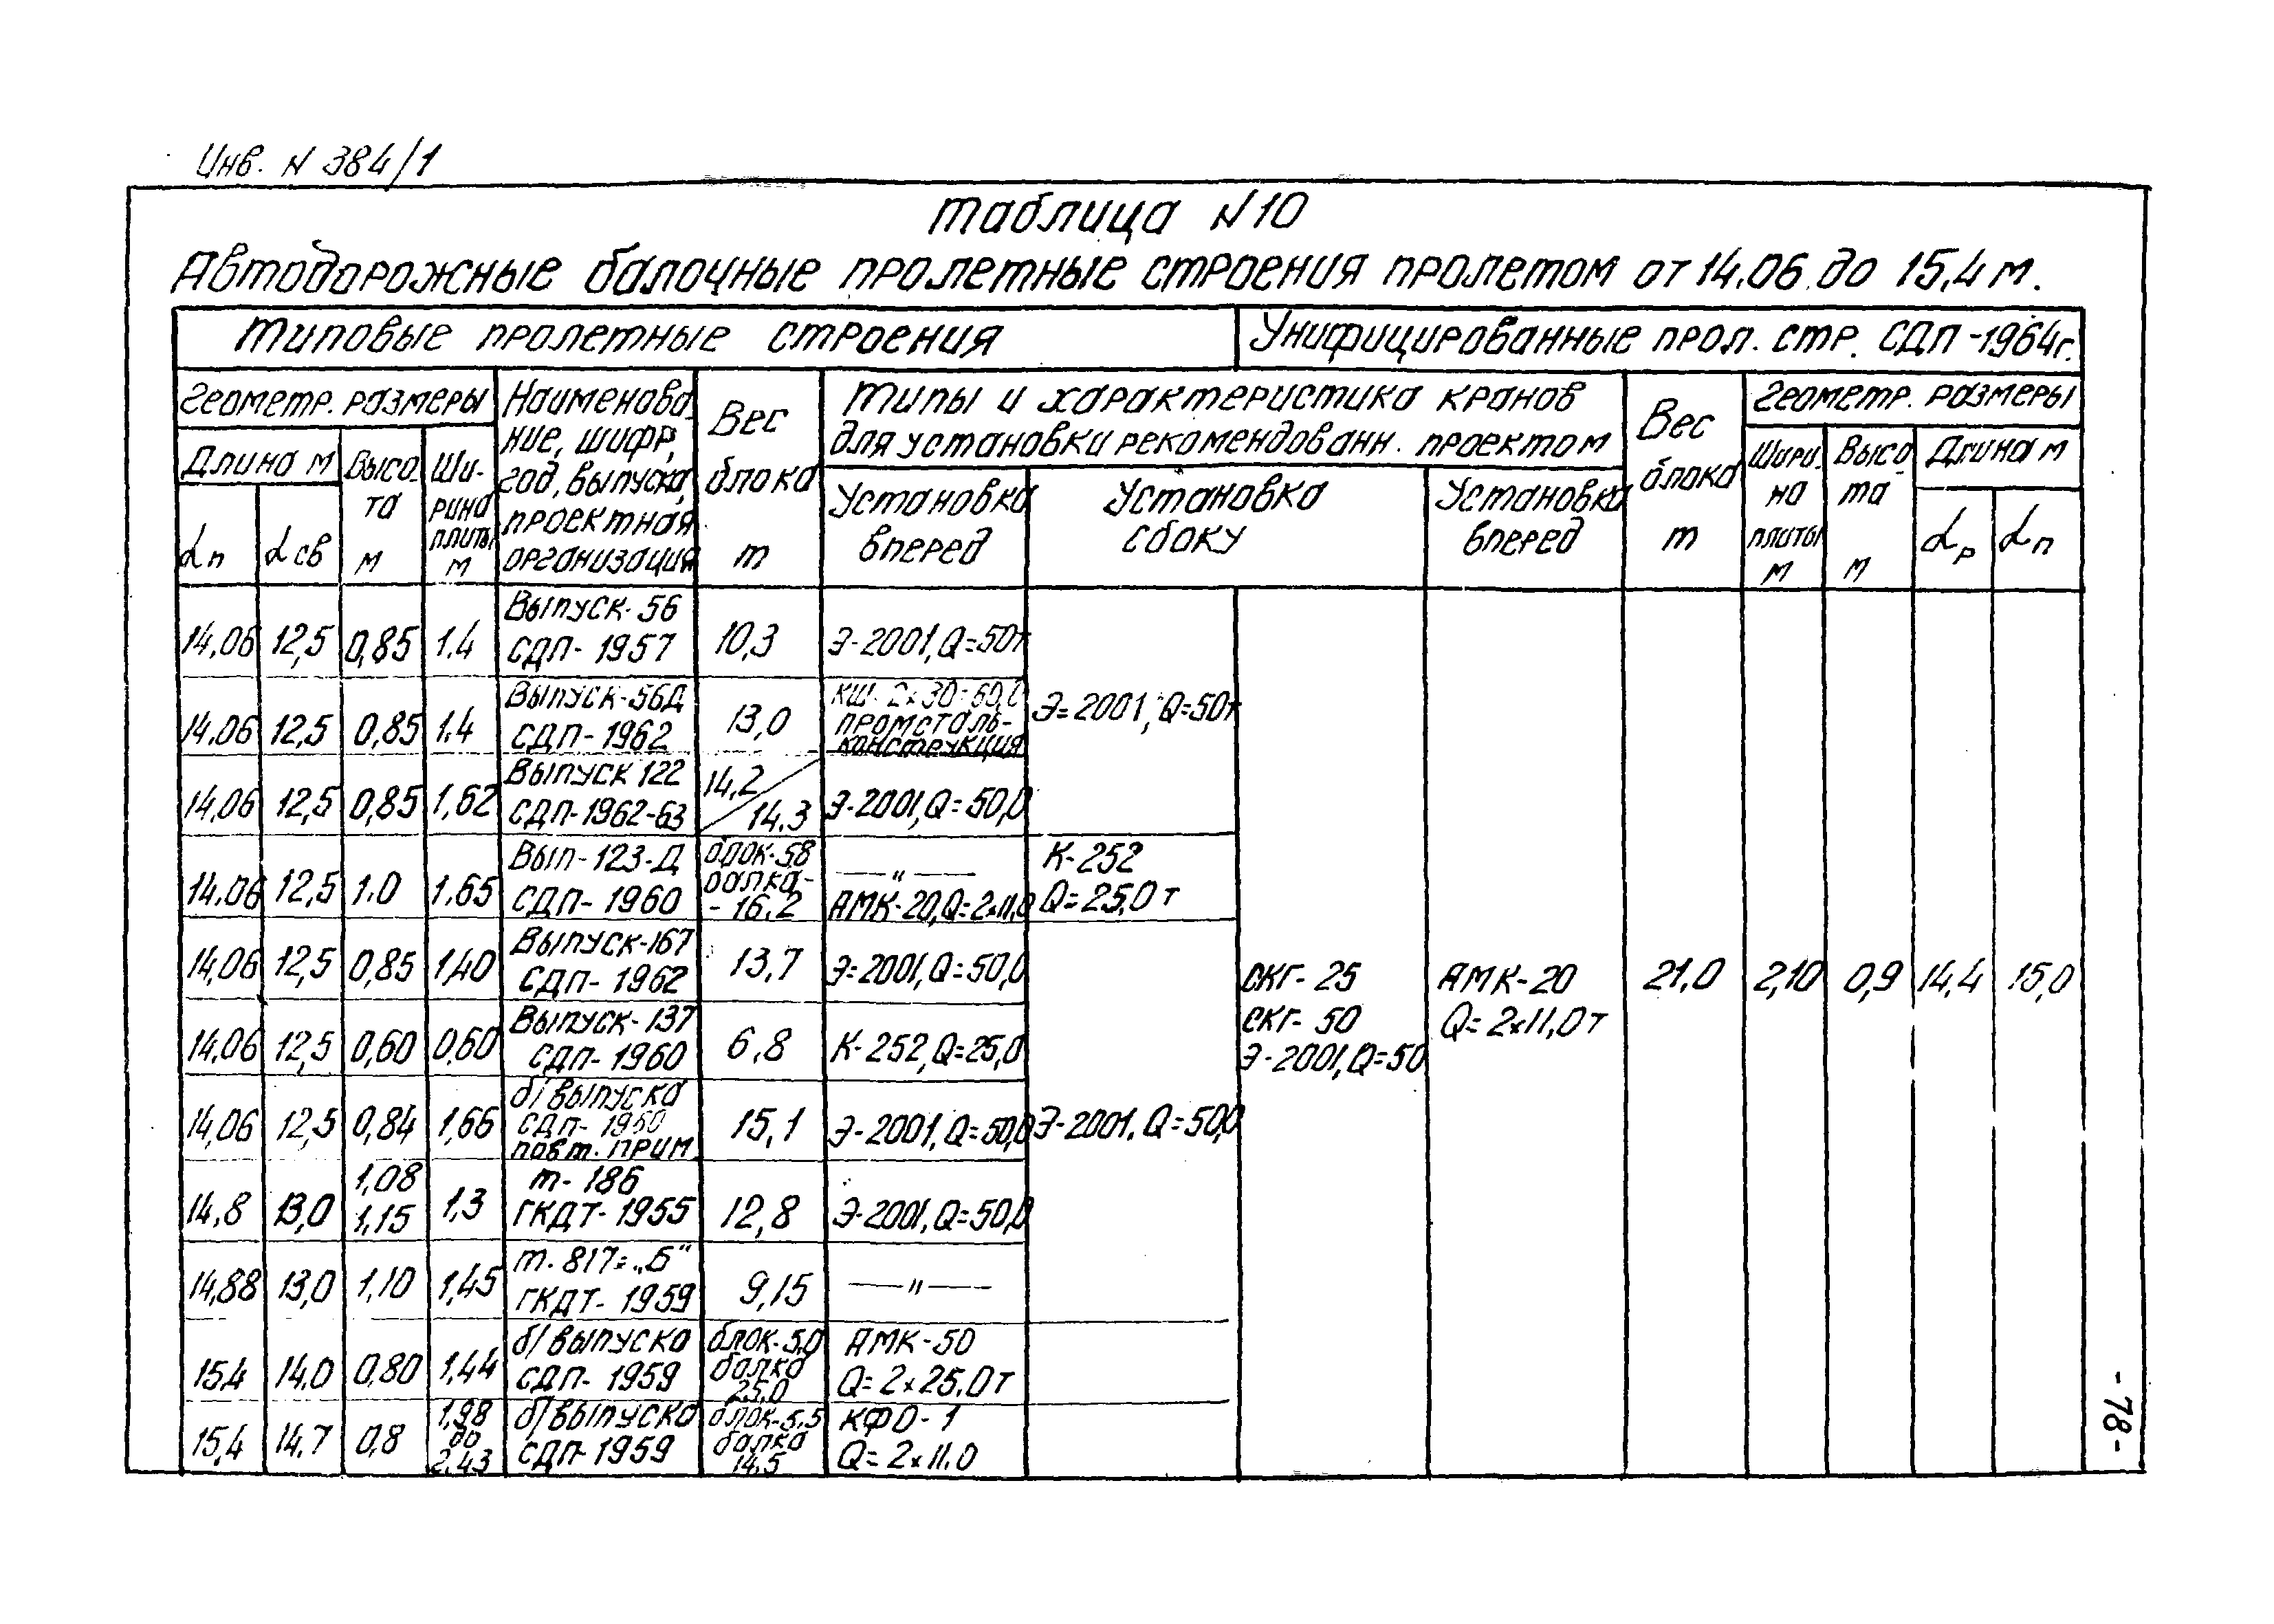 Инв. N 384/1
Таблица N10
Автодорожные балочные пролетные строения пролетом от 14.06 до 15,4 м.
Типовые пролетные строения
Унифицированные прол. стр. СДП-1964г.
Геометр. размеры
Наименова-
ние, шифр,
год, выпуска,
проектная
организация
Вес
блока
т
Типы и характеристика кранов
для установки рекомендованн. проектом
Вес
блока
т
Геометр. размеры
Длина м
Высо-
та
м
Ши-
рина
плиты
м
Установка
вперед
Установка
сбоку
Установка
вперед
Шири-
на
плиты
м
Высо-
та
м
Длина м
Lп
Lсв
Lр
Lп
14,06 12,5 0,85 1.4
Выпуск-56
СДП- 1957
10,3
Э-2001, Q=50т
14.06 12,5 0,85 1.4
Выпуск-56Д
СДП-1962
13,0
КШ- 2х30=60,0
промсталь-
конструкция
Э=2001, Q=50т
14.06 12,5 0,85 1,62
Выпуск 122
СДП-1962-63
14,2
14.3
Э-2001, Q=50,0
14.06 12,5 1.0 1.65
Вып-123-Д
СДП- 1960
блок-5.8
балка-
- 16.2
—„—
АМК-20, Q=2х11,0
К-252
Q=25,0 т
14,06 12,5 0,85 1,40
Выпуск-167
СДП- 1962
13,7
Э=2001, Q=50,0
СКГ- 25
СКГ- 50
Э-2001, Q=50
АМК-20
Q=2х11,0т
21,0 2,10 0,9 14,4 15,0
14.06 12,5 0,60 0,60
Выпуск-137
СДП-1960
6,8
К-252, Q=25,0
14,06 12,5 0,84 1,66
б/выпуска
СДП- 1960
повт. прим
15,1
Э-2001, Q=50,0
Э-2001. Q=50,0
14,8 13,0
1,08
1,15
1,3
т- 186
ГКДТ- 1955
12,8
Э-2001, Q=50,0
14,88 13,0 1,10 1,45
т. 817= „Б"
ГКДТ- 1959
9,15
—„—
15,4 14.0 0,80 1,44
б/выпуска
СДП- 1959
блок-5,0
балка
25.0
АМК-50
Q=2х25.0 т
15,4 14.7 0,8
1,98
до
2,43
б/выпуска
СДП-1959
блок-5,5
балка
14.5
КФО-1
Q=2х11.0
-78-